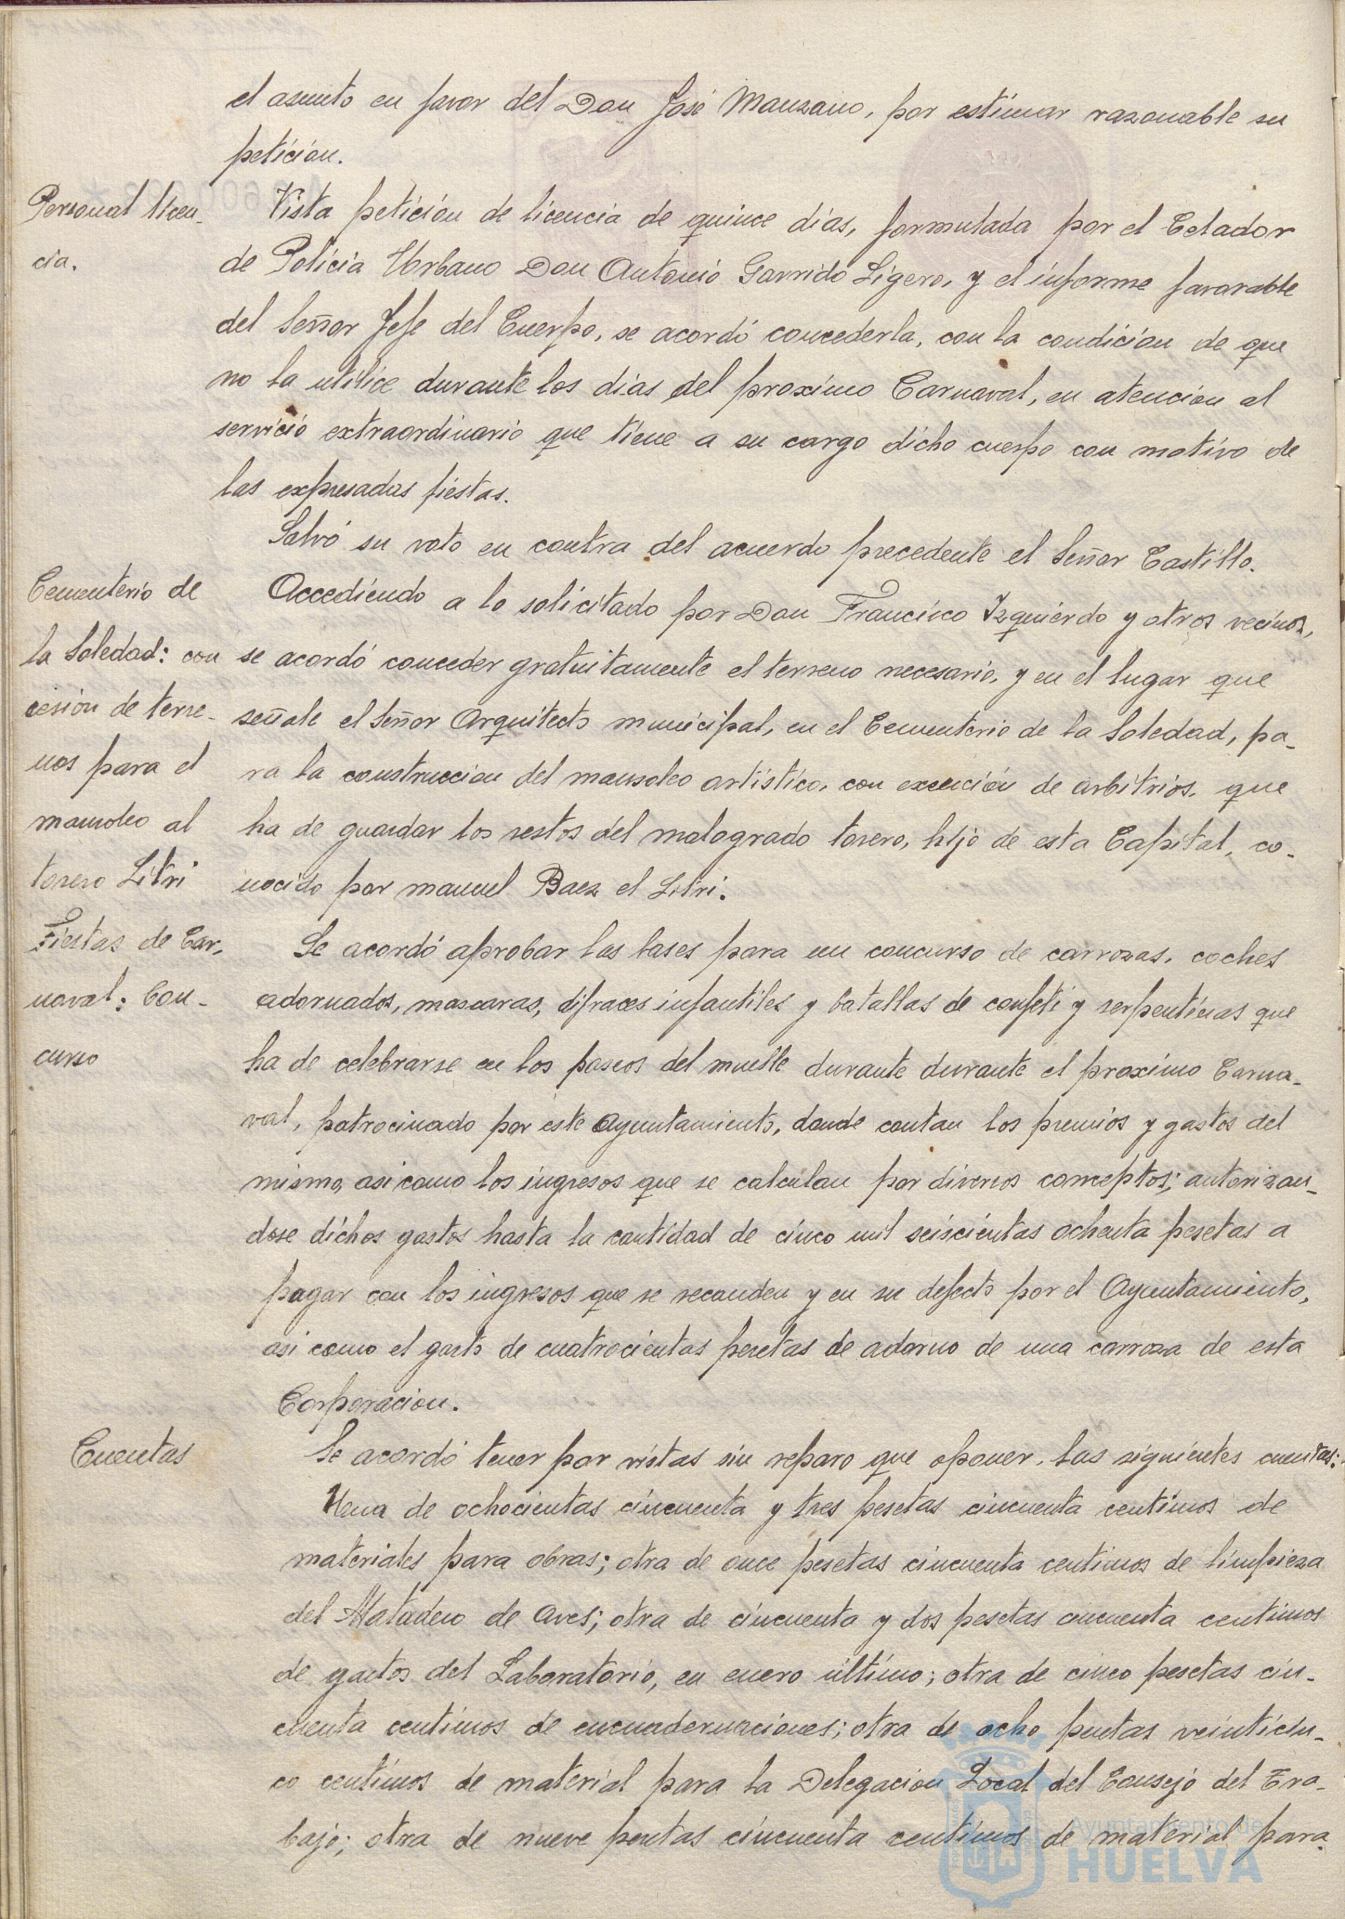 el asunto en favor del Don José Manzano, por estimar razonable su
petición.
Personal licen-
cia.
Vista petición de licencia de quince dias, formulada por el Celador
de Policia Urbano Don Antonio Garrido Ligero, y el informe favorable
del Señor Jefe del Cuerpo, se acordó concederla, con la condición de que
no la utilice durante los dias del proximo Carnaval, en atención al
servicio extraordinario que tiene a su cargo dicho cuerpo con motivo de
las expresadas fiestas.
Salvó su voto en contra del acuerdo precedente el Señor Castillo.
Cementerio de
la Soledad: con
cesión de terre-
nos para el
mausoleo al
torero Litri
Accediendo a lo solicitado por Don Francisco Izquierdo y otros vecinos,
se acordó conceder gratuitamente el terreno necesario, y en el lugar que
señale el Señor Arquitecto municipal, en el Cementerio de la Soledad, pa-
ra la construccion del mausoleo artístico, con exención de arbitrios, que
ha de guardar los restos del malogrado torero, hijo de esta Capital, co-
nocido por manuel Baez el Litri.
Fiestas de Car-
naval: Con-
curso
Se acordó aprobar las bases para un concurso de carrozas, coches
adornados, mascaras, difraces infantiles y batallas de confeti y serpentinas que
ha de celebrarse en los paseos del muelle durante durante el proximo Carna-
val, patrocinado por este Ayuntamiento, donde contan los premios y gastos del
mismo, asi como los ingresos que se calculan por diversos conceptos; autorizan-
dose dichos gastos hasta la cantidad de cinco mil seiscientas ochenta pesetas a
pagar con los ingresos que se recauden y en su defecto por el Ayuntamiento,
asi como el gasto de cuatrocientas pesetas de adorno de una carroza de esta
Corporacion.
Cuentas
Se acordó tener por vistas sin reparo que oponer, las siguientes cuentas:
Una de ochocientas cincuenta y tres pesetas cincuenta centimos de
materiales para obras; otra de once pesetas cincuenta centimos de limpieza
del Matadero de Aves; otra de cincuenta y dos pesetas cincuenta centimos
de gastos del Laboratorio, en enero último; otra de cinco pesetas cin-
cuenta centimos de encuadernaciones; otra de ocho pesetas veinticin-
co centimos de material para la Delegacion Local del Consejo del Tra-
bajo; otra de nueve pesetas cincuenta centimos de material para
Ayuntamiento de
HUELVA